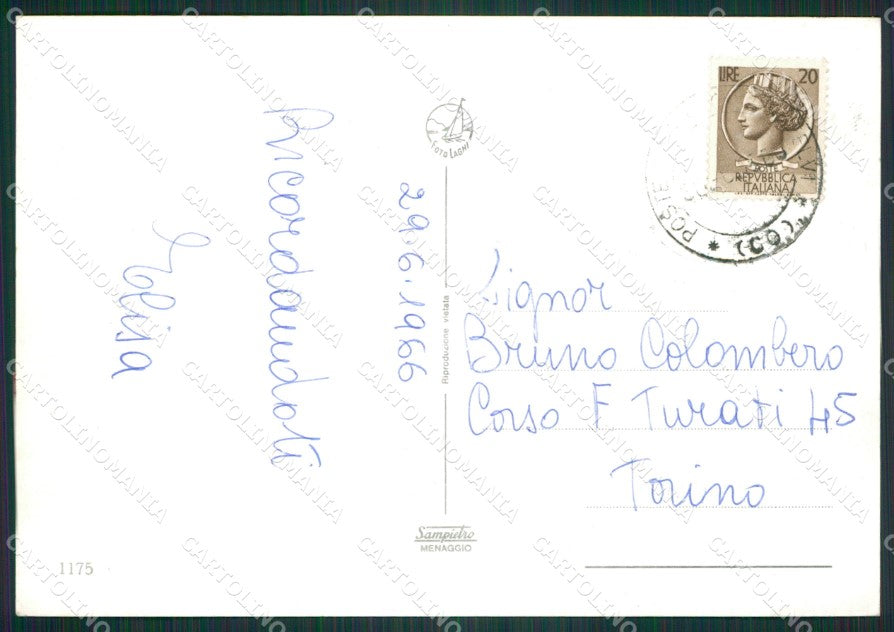 Ricordandoti
Elisa
29.6.1966
FOTO LAGHI
Riproduzione vietata
Sampietro
MENAGGIO
1175
LIRE 20
POSTE
REPVBBLICA
ITALIANA
POSTE * (CO)
Signor
Bruno Colombero
Corso F Turati 45
Torino
CARTOLINOMANIA